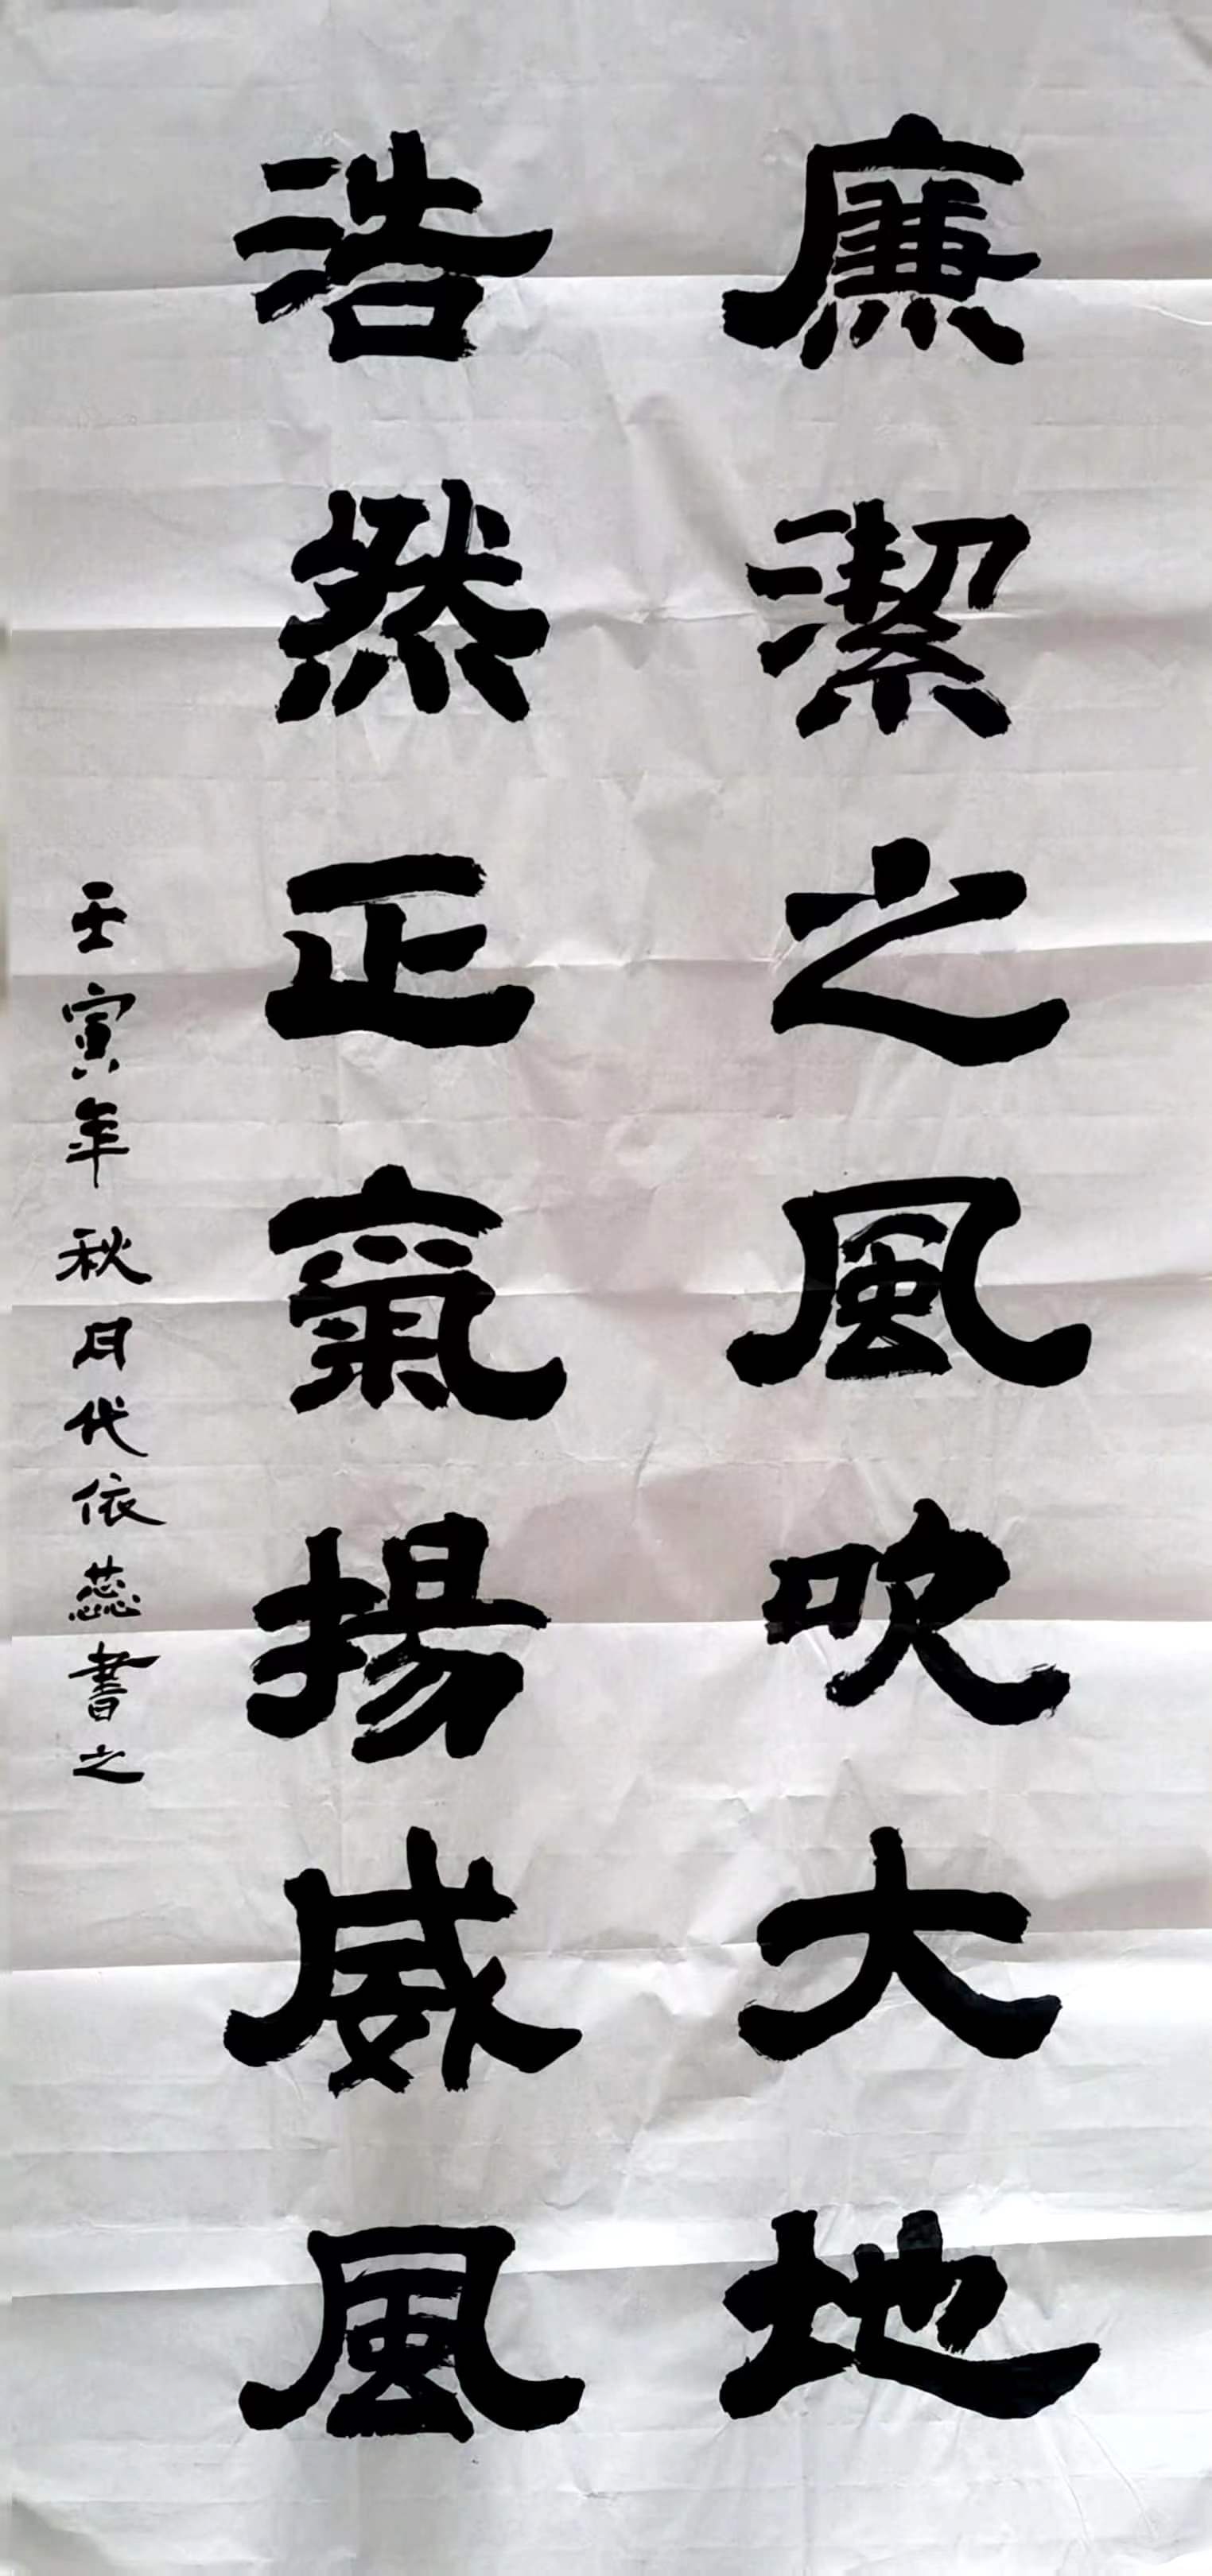 廉潔之風吹大地
浩然正氣揚威風
壬寅年秋月代依蕊書之